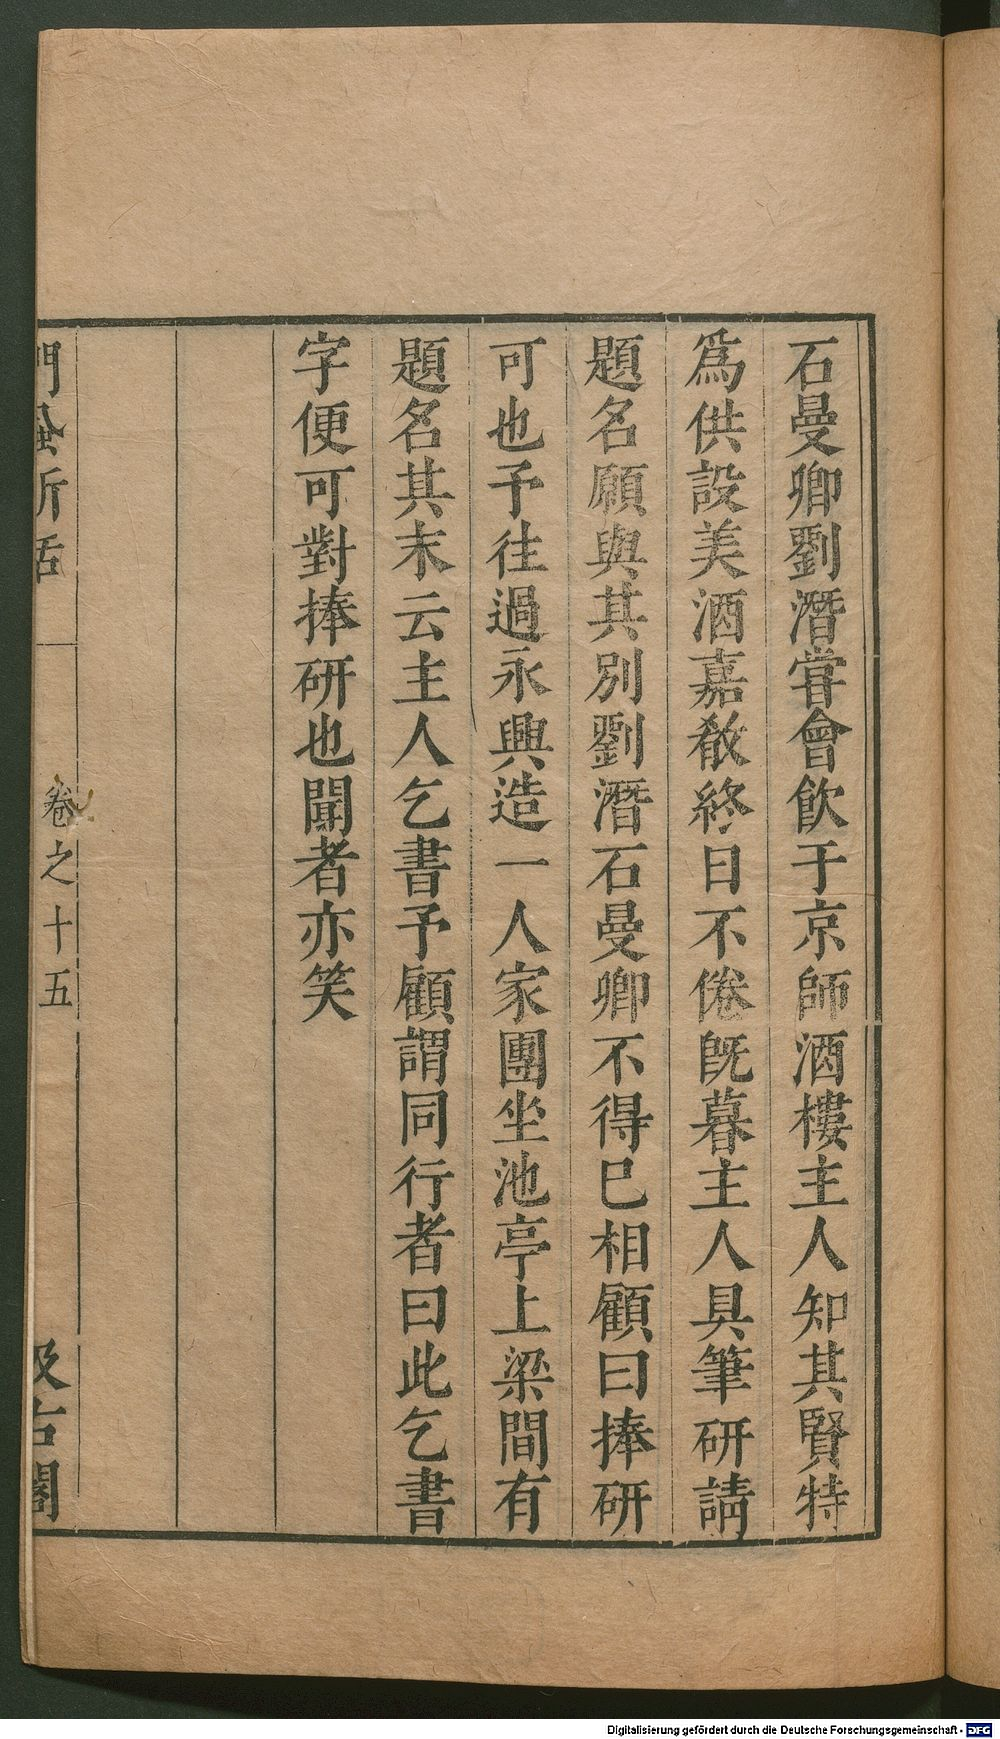 石曼卿劉潛嘗會飲于京師酒樓主人知其賢特
爲供設美酒嘉殽終日不倦旣暮主人具筆研請
題名願與其別劉潛石曼卿不得已相顧曰捧研
可也予往過永興造一人家團坐池亭上梁間有
題名其末云主人乞書予顧謂同行者曰此乞書
字便可對捧研也聞者亦笑
門蝨新話
卷之十五
汲古閣
Digitalisierung gefördert durch die Deutsche Forschungsgemeinschaft - DFG